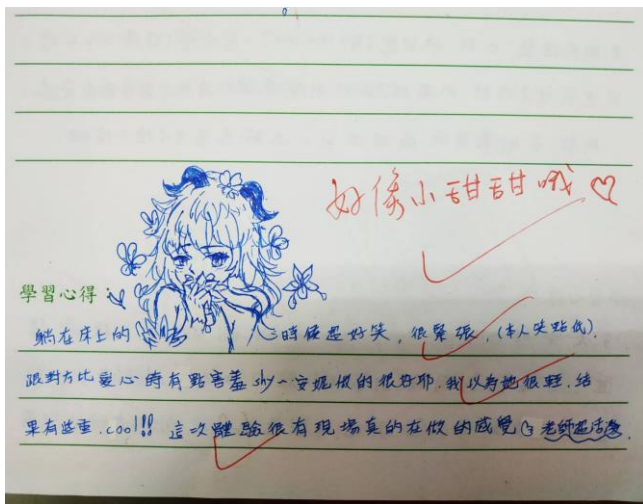 好像小甜甜哦♡
學習心得：
躺在床上的時候超好笑，很緊張，(本人笑點低)．
跟對方比愛心時有點害羞shy～安妮做的很好耶．我以為她很輕，結
果有些重．cool!!! 這次體驗很有現場真的在做的感覺 老師超活潑